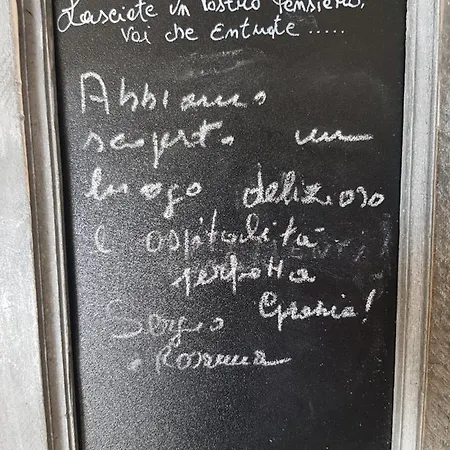 Lasciate un vostro Pensiero,
Voi che Entrate .....
Abbiamo
scoperto un
luogo delizioso
l'ospitalità
perfetta
Grazie!
Sergio
e Rosanna